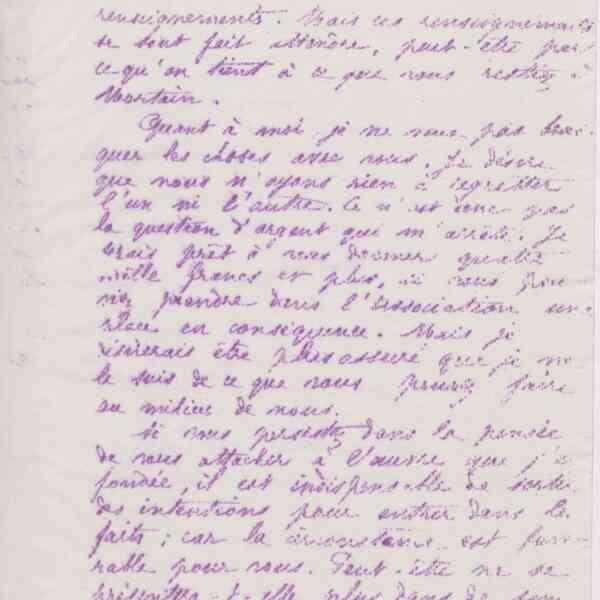 renseignements. Mais ces renseignements
se sont fait attendre, peut-être par
ce qu'on tient à ce que vous restiez à
Mortain.
Quant à moi je ne veux pas brus
quer les choses avec vous. Je désire
que nous n'ayons rien à regretter
l'un ni l'autre. Ce n'est donc pas
la question d'argent qui m'arrête. Je
serais prêt à vous donner quatre
mille francs et plus, si vous pou
viez prendre dans l'association une
place en conséquence. Mais je
désirerais être plus assuré que je ne
le suis de ce que vous pouvez faire
au milieu de nous.
Si vous persistez dans la pensée
de vous attacher à l'œuvre que j'ai
fondée, il est indispensable de sortir
des intentions pour entrer dans les
faits; car la circonstance est favo
rable pour vous. Peut-être ne se
présentera-t-elle plus dans de